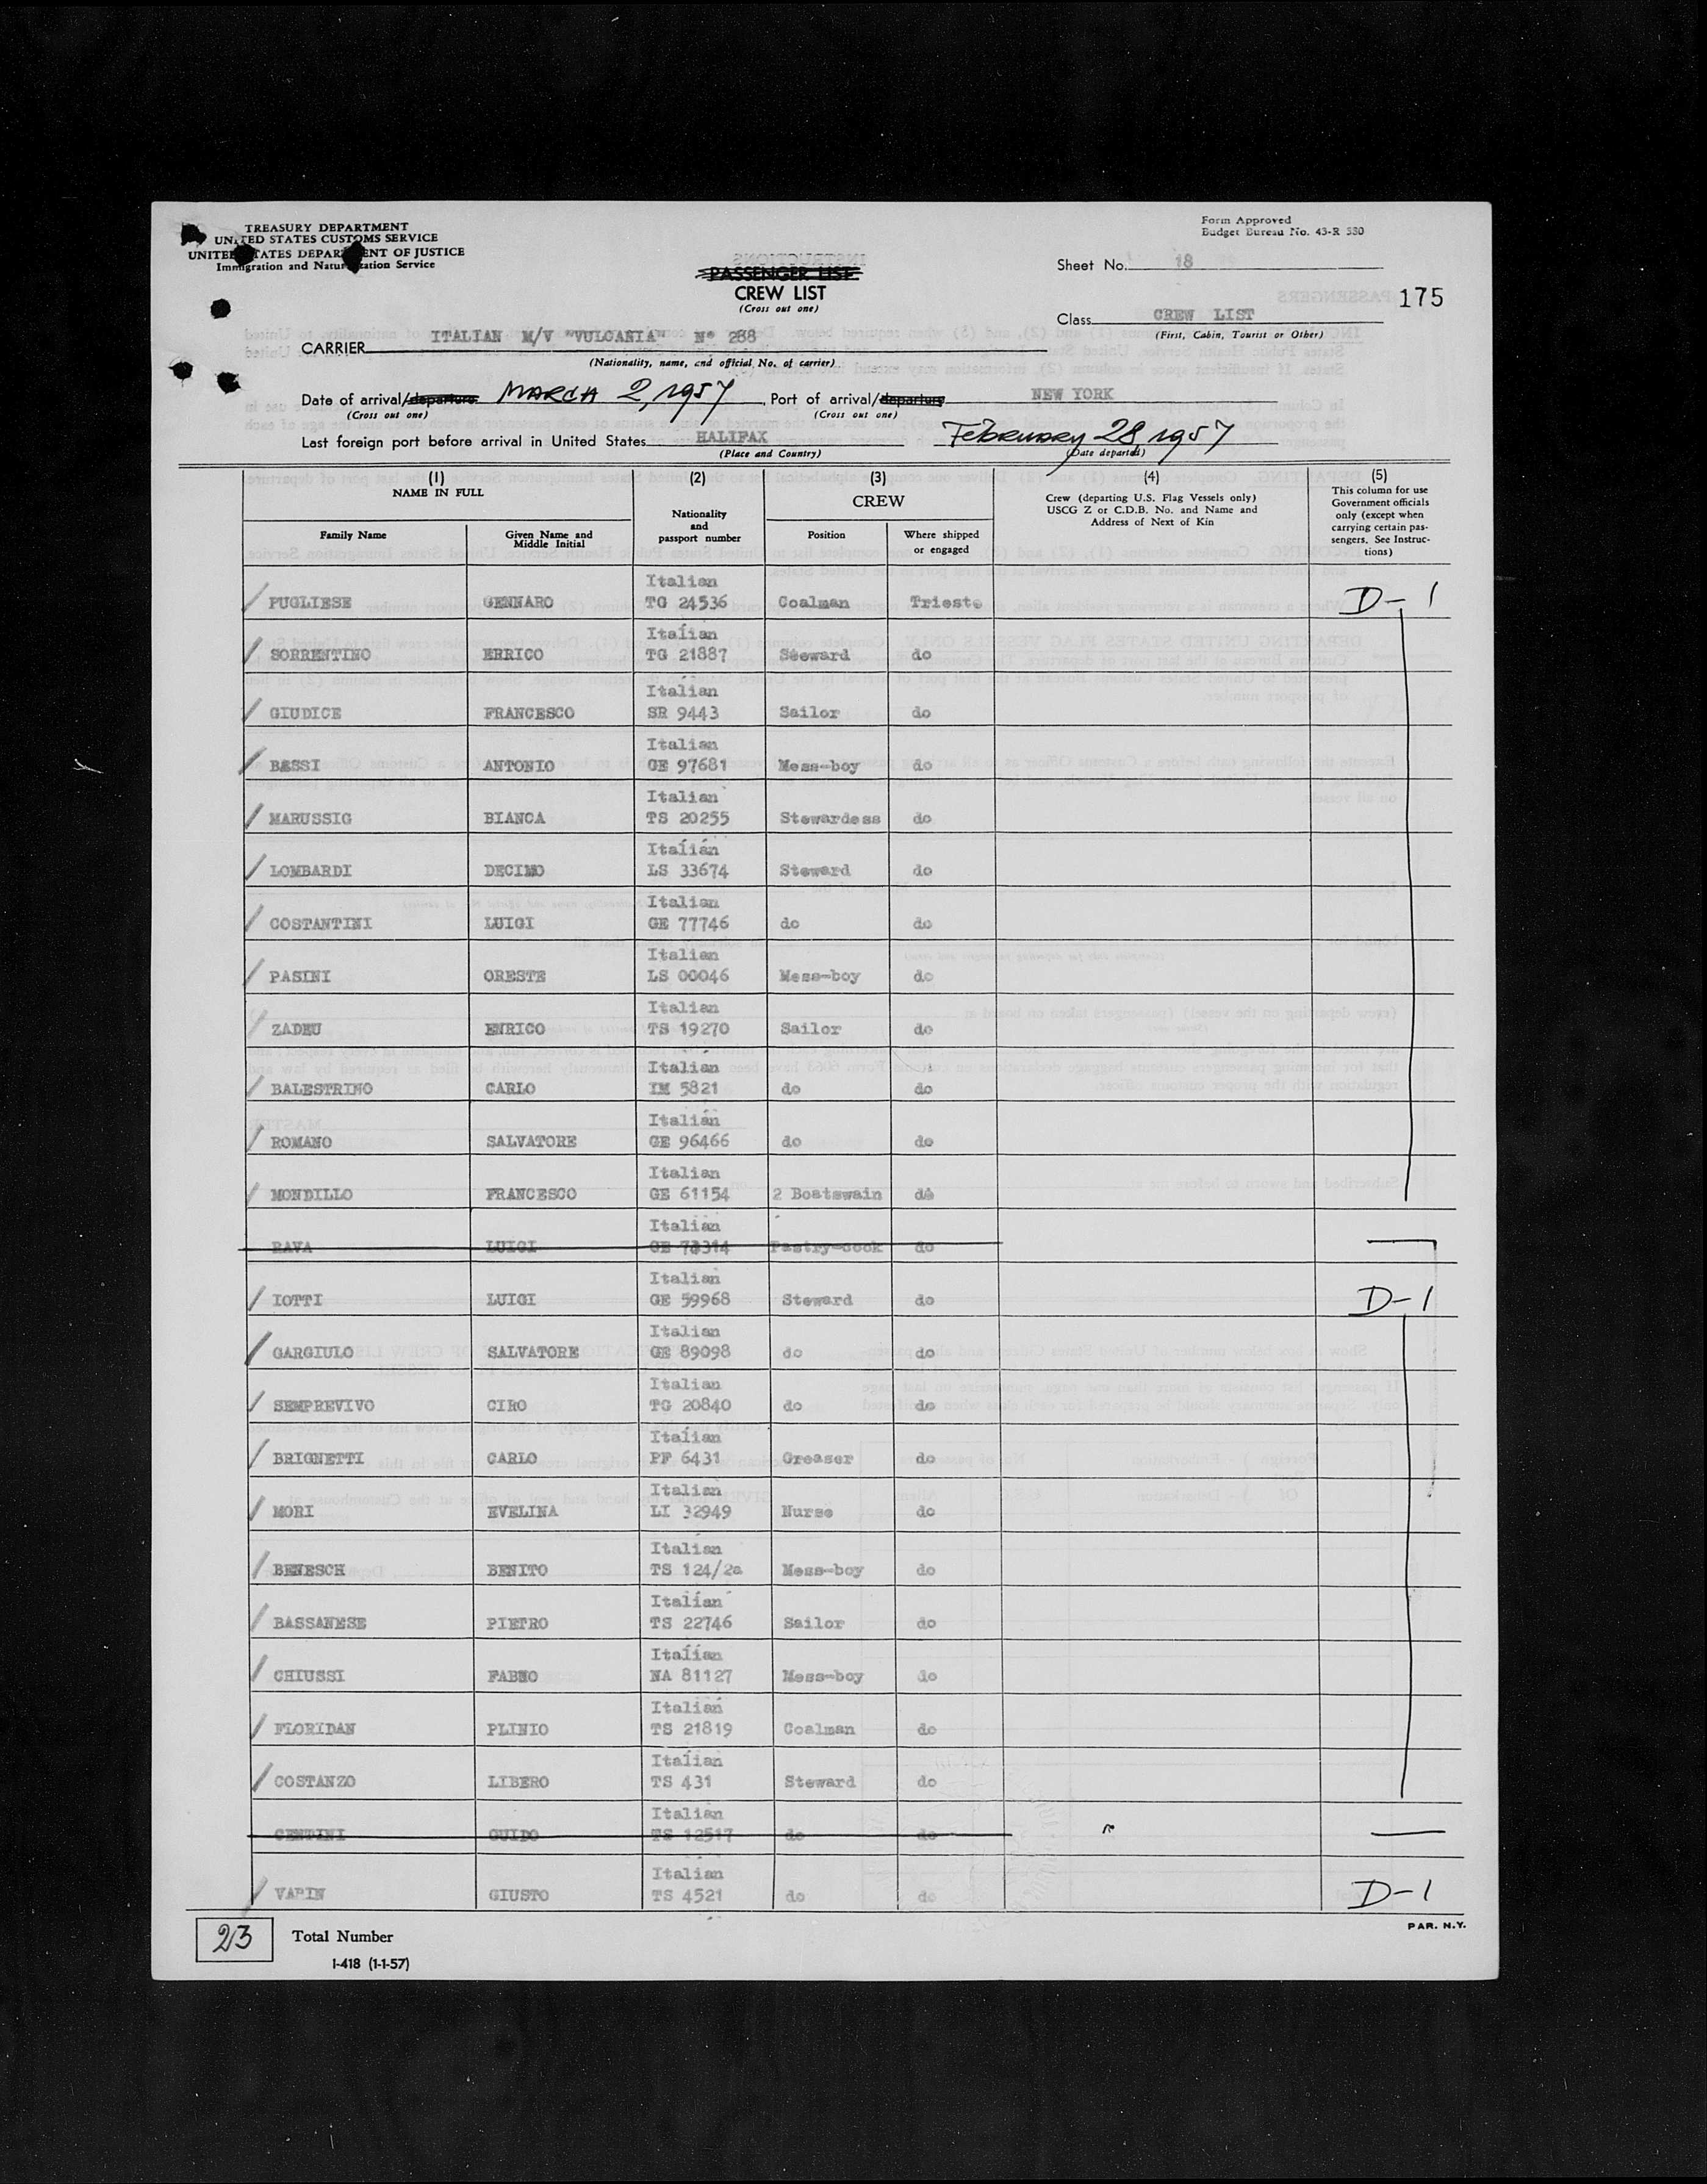 TREASURY DEPARTMENT
UNITED STATES CUSTOMS SERVICE
UNITED STATES DEPARTMENT OF JUSTICE
Immigration and Naturalization Service
Form Approved
Budget Bureau No. 43-R 580
PASSENGER LIST
CREW LIST
(Cross out one)
Sheet No. 18
175
Class CREW LIST
(First, Cabin, Tourist or Other)
CARRIER ITALIAN M/V "VULCANIA" N° 288
(Nationality, name, and official No. of carrier)
Date of arrival/departure MARCH 2, 1957, Port of arrival/departure NEW YORK
(Cross out one) (Cross out one)
Last foreign port before arrival in United States HALIFAX February 28, 1957
(Place and Country) (Date departed)
(1) NAME IN FULL
Family Name
Given Name and Middle Initial
(2)
Nationality and passport number
(3) CREW
Position
Where shipped or engaged
(4)
Crew (departing U.S. Flag Vessels only) USCG Z or C.D.B. No. and Name and Address of Next of Kin
(5)
This column for use Government officials only (except when carrying certain passengers. See Instructions)
PUGLIESE GENNARO Italian TG 24536 Coalman Trieste D-1
SORRENTINO ERRICO Italian TG 21887 Steward do
GIUDICE FRANCESCO Italian SR 9443 Sailor do
BESSI ANTONIO Italian GE 97681 Mess-boy do
MARUSSIG BIANCA Italian TS 20255 Stewardess do
LOMBARDI DECIMO Italian LS 33674 Steward do
COSTANTINI LUIGI Italian GE 77746 do do
PASINI ORESTE Italian LS 00046 Mess-boy do
ZADEU ENRICO Italian TS 19270 Sailor do
BALESTRINO CARLO Italian IM 5821 do do
ROMANO SALVATORE Italian GE 96466 do do
MONDILLO FRANCESCO Italian GE 61154 2 Boatswain do
RAVA LUIGI Italian GE 73314 Pastry-cook do
IOTTI LUIGI Italian GE 59968 Steward do D-1
GARGIULO SALVATORE Italian GE 89098 do do
SEMPREVIVO CIRO Italian TG 20840 do do
BRIGNETTI CARLO Italian PF 6431 Greaser do
MORI EVELINA Italian LI 32949 Nurse do
BENESCH BENITO Italian TS 124/2a Mess-boy do
BASSANESE PIETRO Italian TS 22746 Sailor do
CHIUSSI FABIO Italian NA 81127 Mess-boy do
FLORIDAN PLINIO Italian TS 21819 Coalman do
COSTANZO LIBERO Italian TS 431 Steward do
CENDINI GUIDO Italian TS 12517 do do
VARIN GIUSTO Italian TS 4521 do do D-1
23 Total Number
I-418 (1-1-57)
PAR. N.Y.